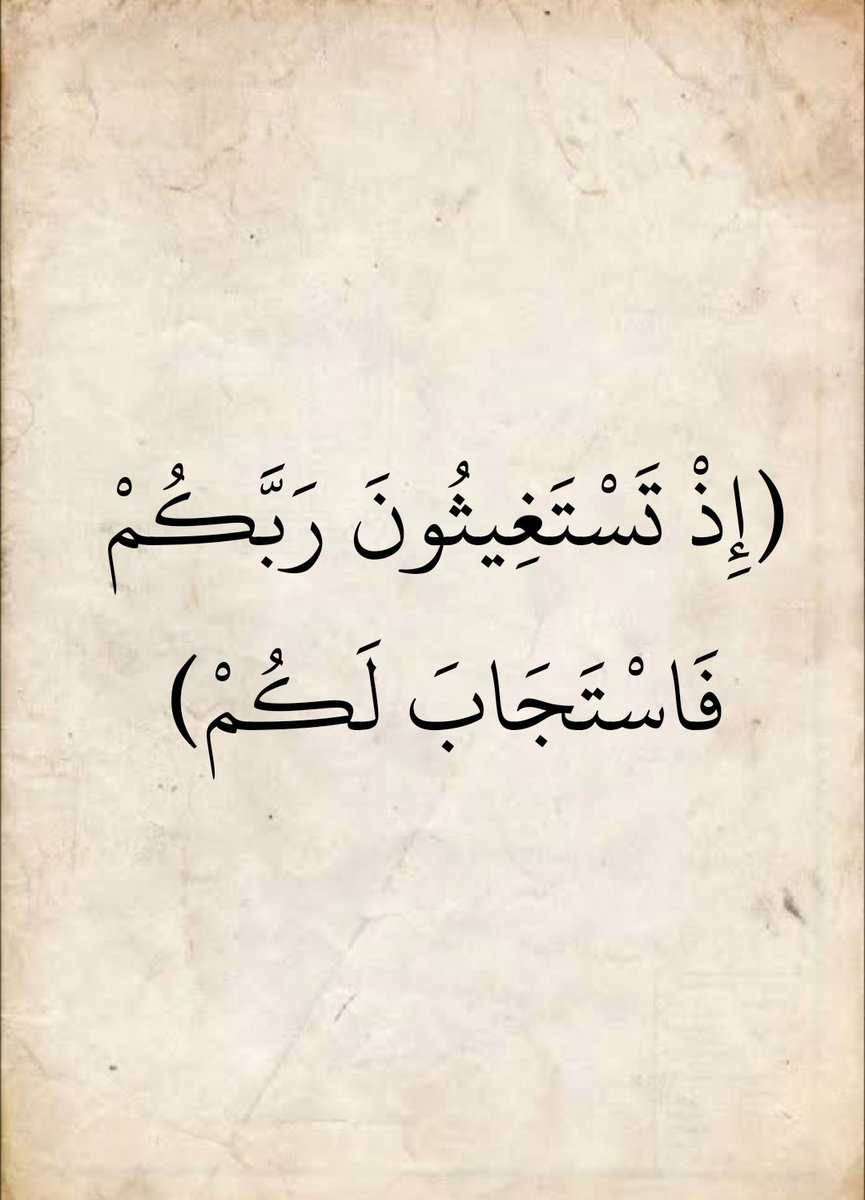 (إِذْ تَسْتَغِيثُونَ رَبَّكُمْ
فَاسْتَجَابَ لَكُمْ)